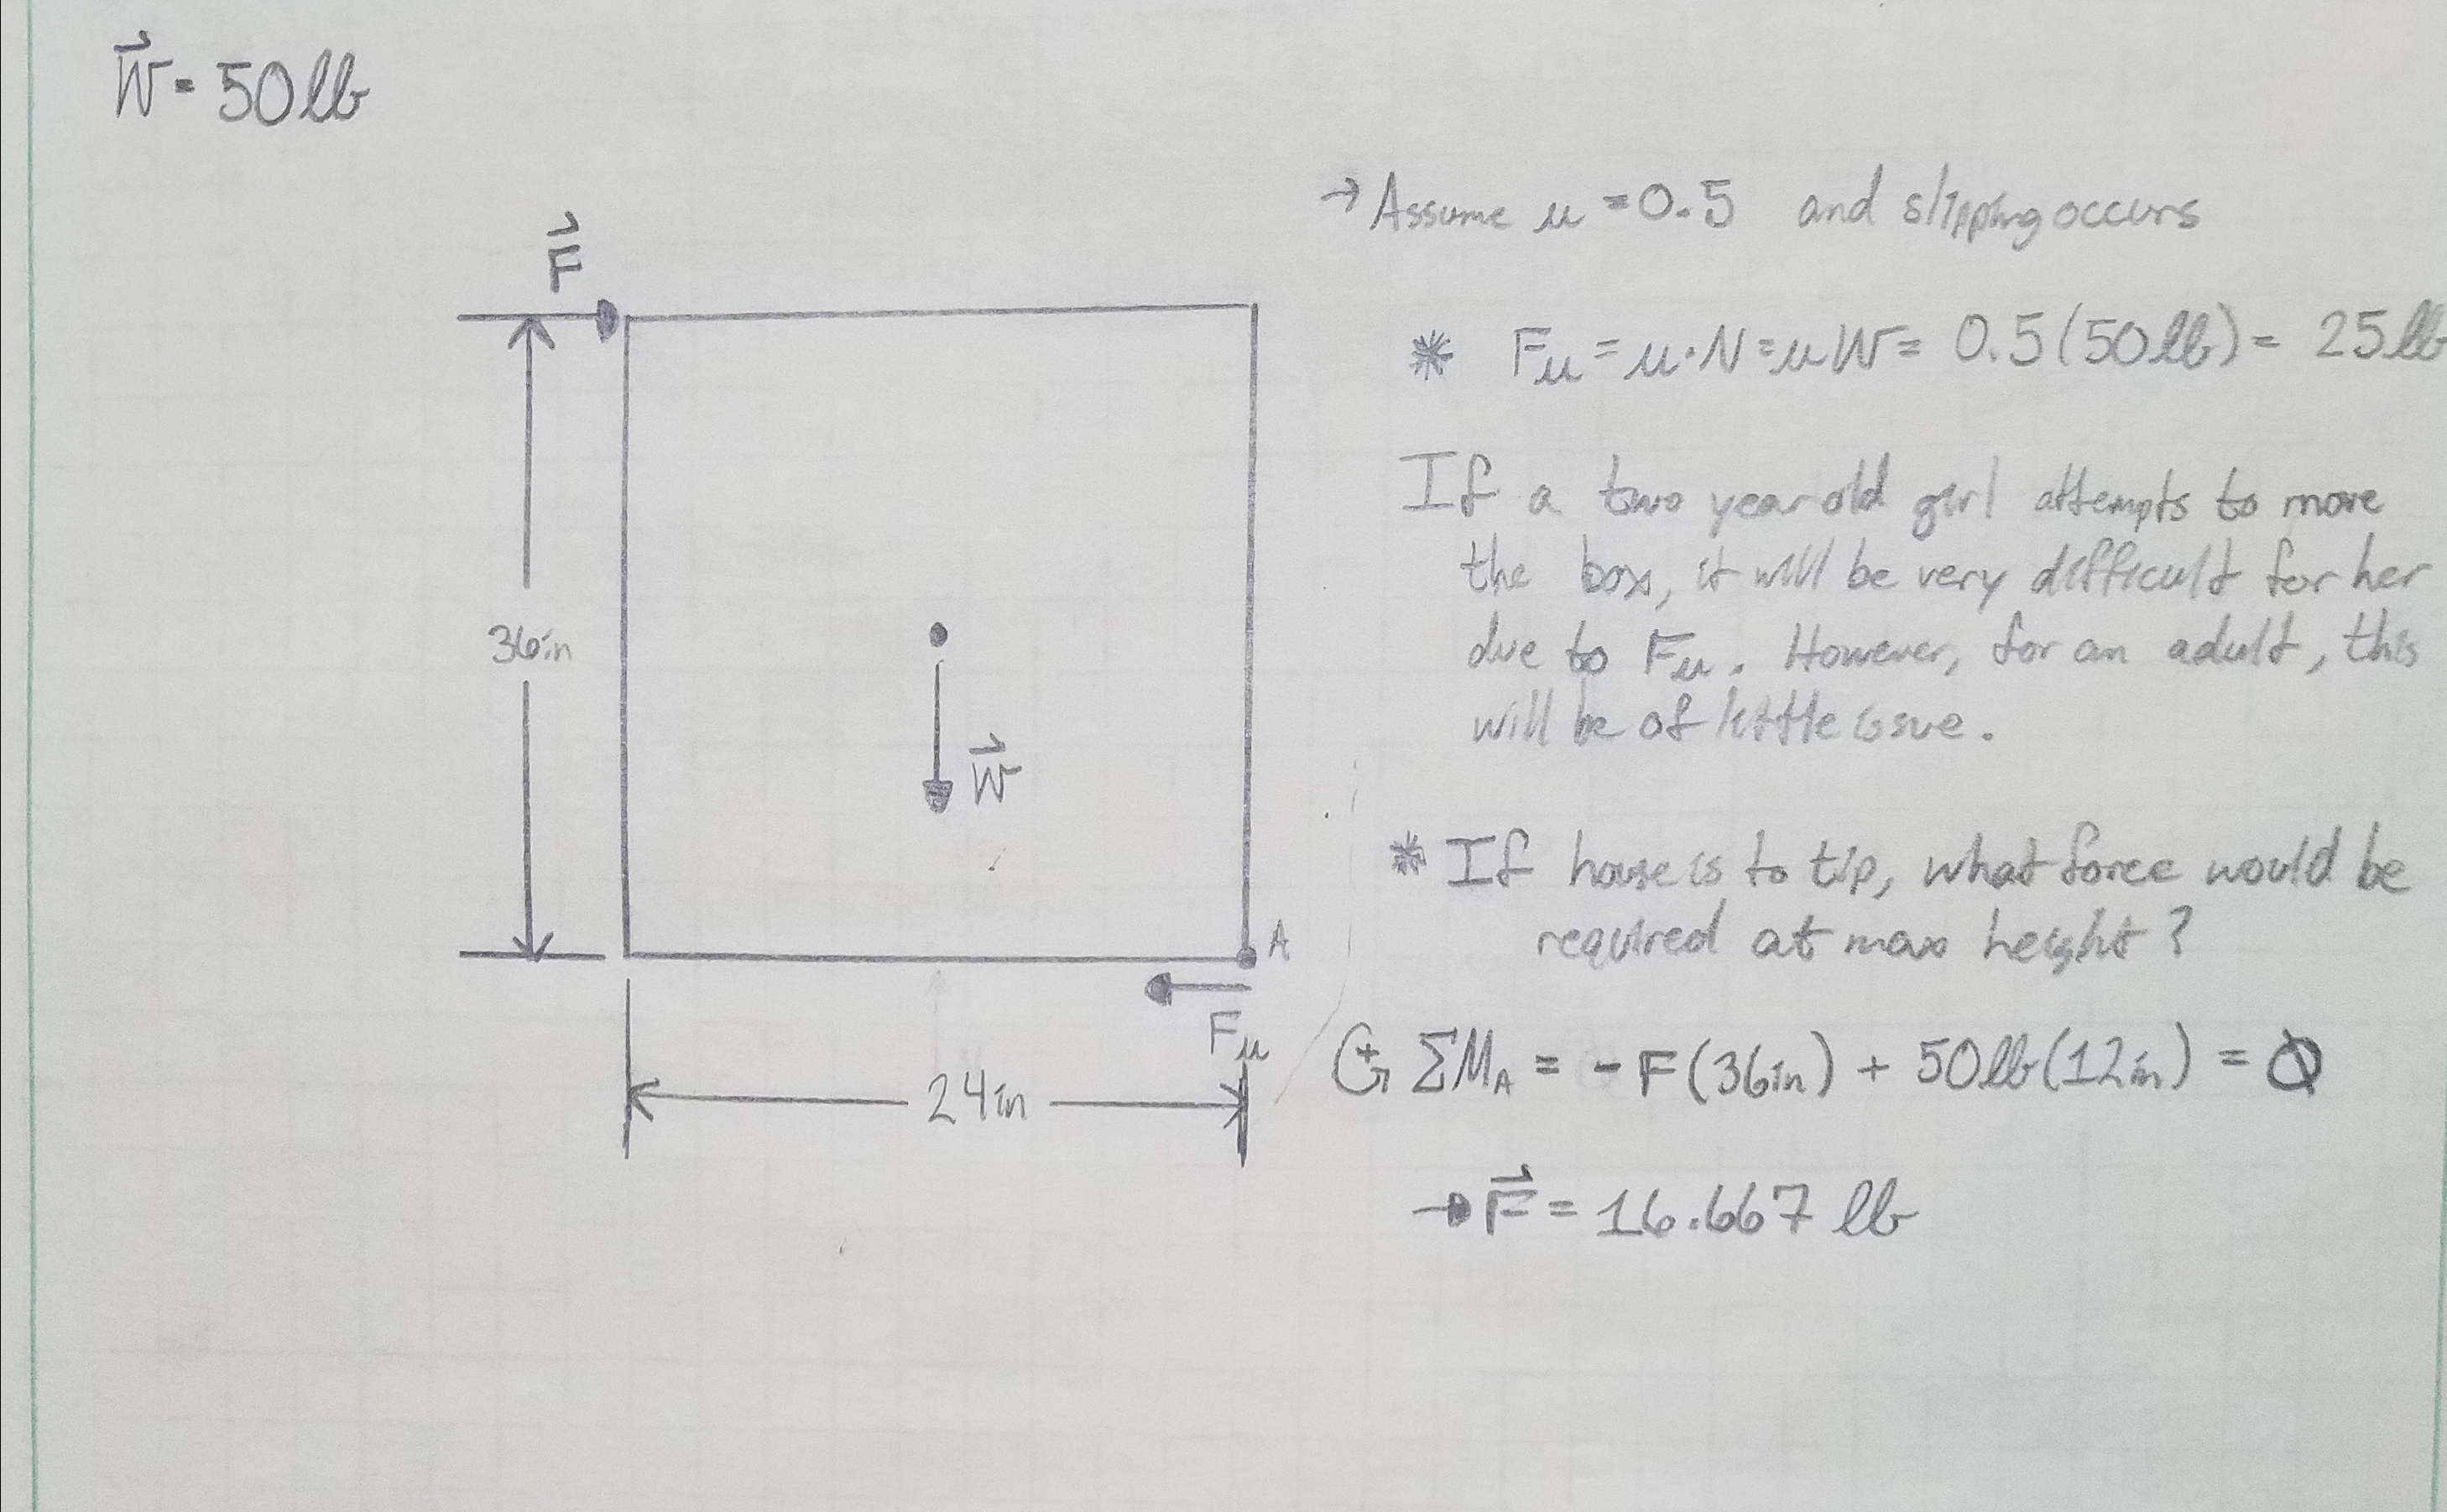 W = 50lb
→ Assume μ = 0.5 and slipping occurs
F
* Fμ = μ·N = μW = 0.5(50lb) = 25lb
If a two year old girl attempts to move
the box, it will be very difficult for her
36in
due to Fμ. However, for an adult, this
will be of little issue.
W
* If house is to tip, what force would be
required at max height?
A
Fμ
+ ΣMA = -F(36in) + 50lb(12in) = 0
24in
→ F = 16.667 lb